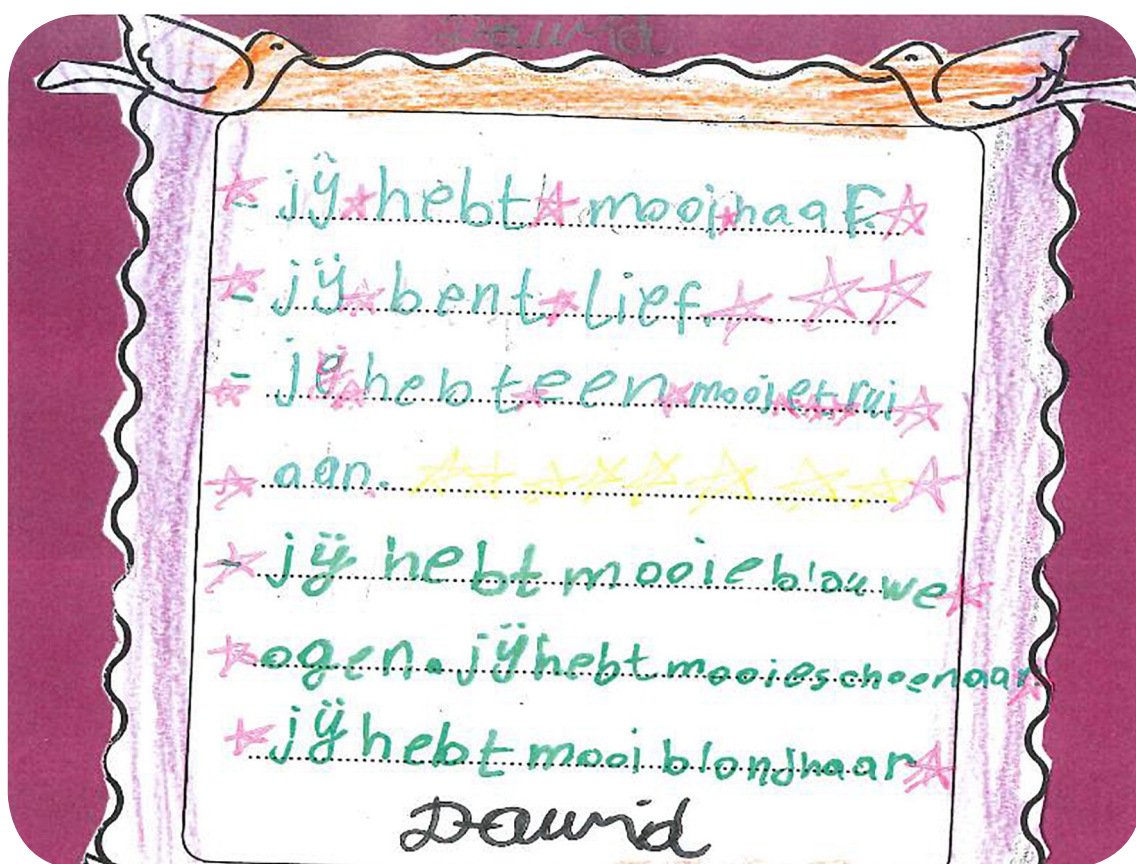 Dawid
- jÿ hebt mooi haar.
- jÿ bent lief.
- je hebt een mooie trui
aan.
- jÿ hebt mooie blauwe
ogen. jÿ hebt mooie schoenaar
jÿ hebt mooi blond haar
Dawid